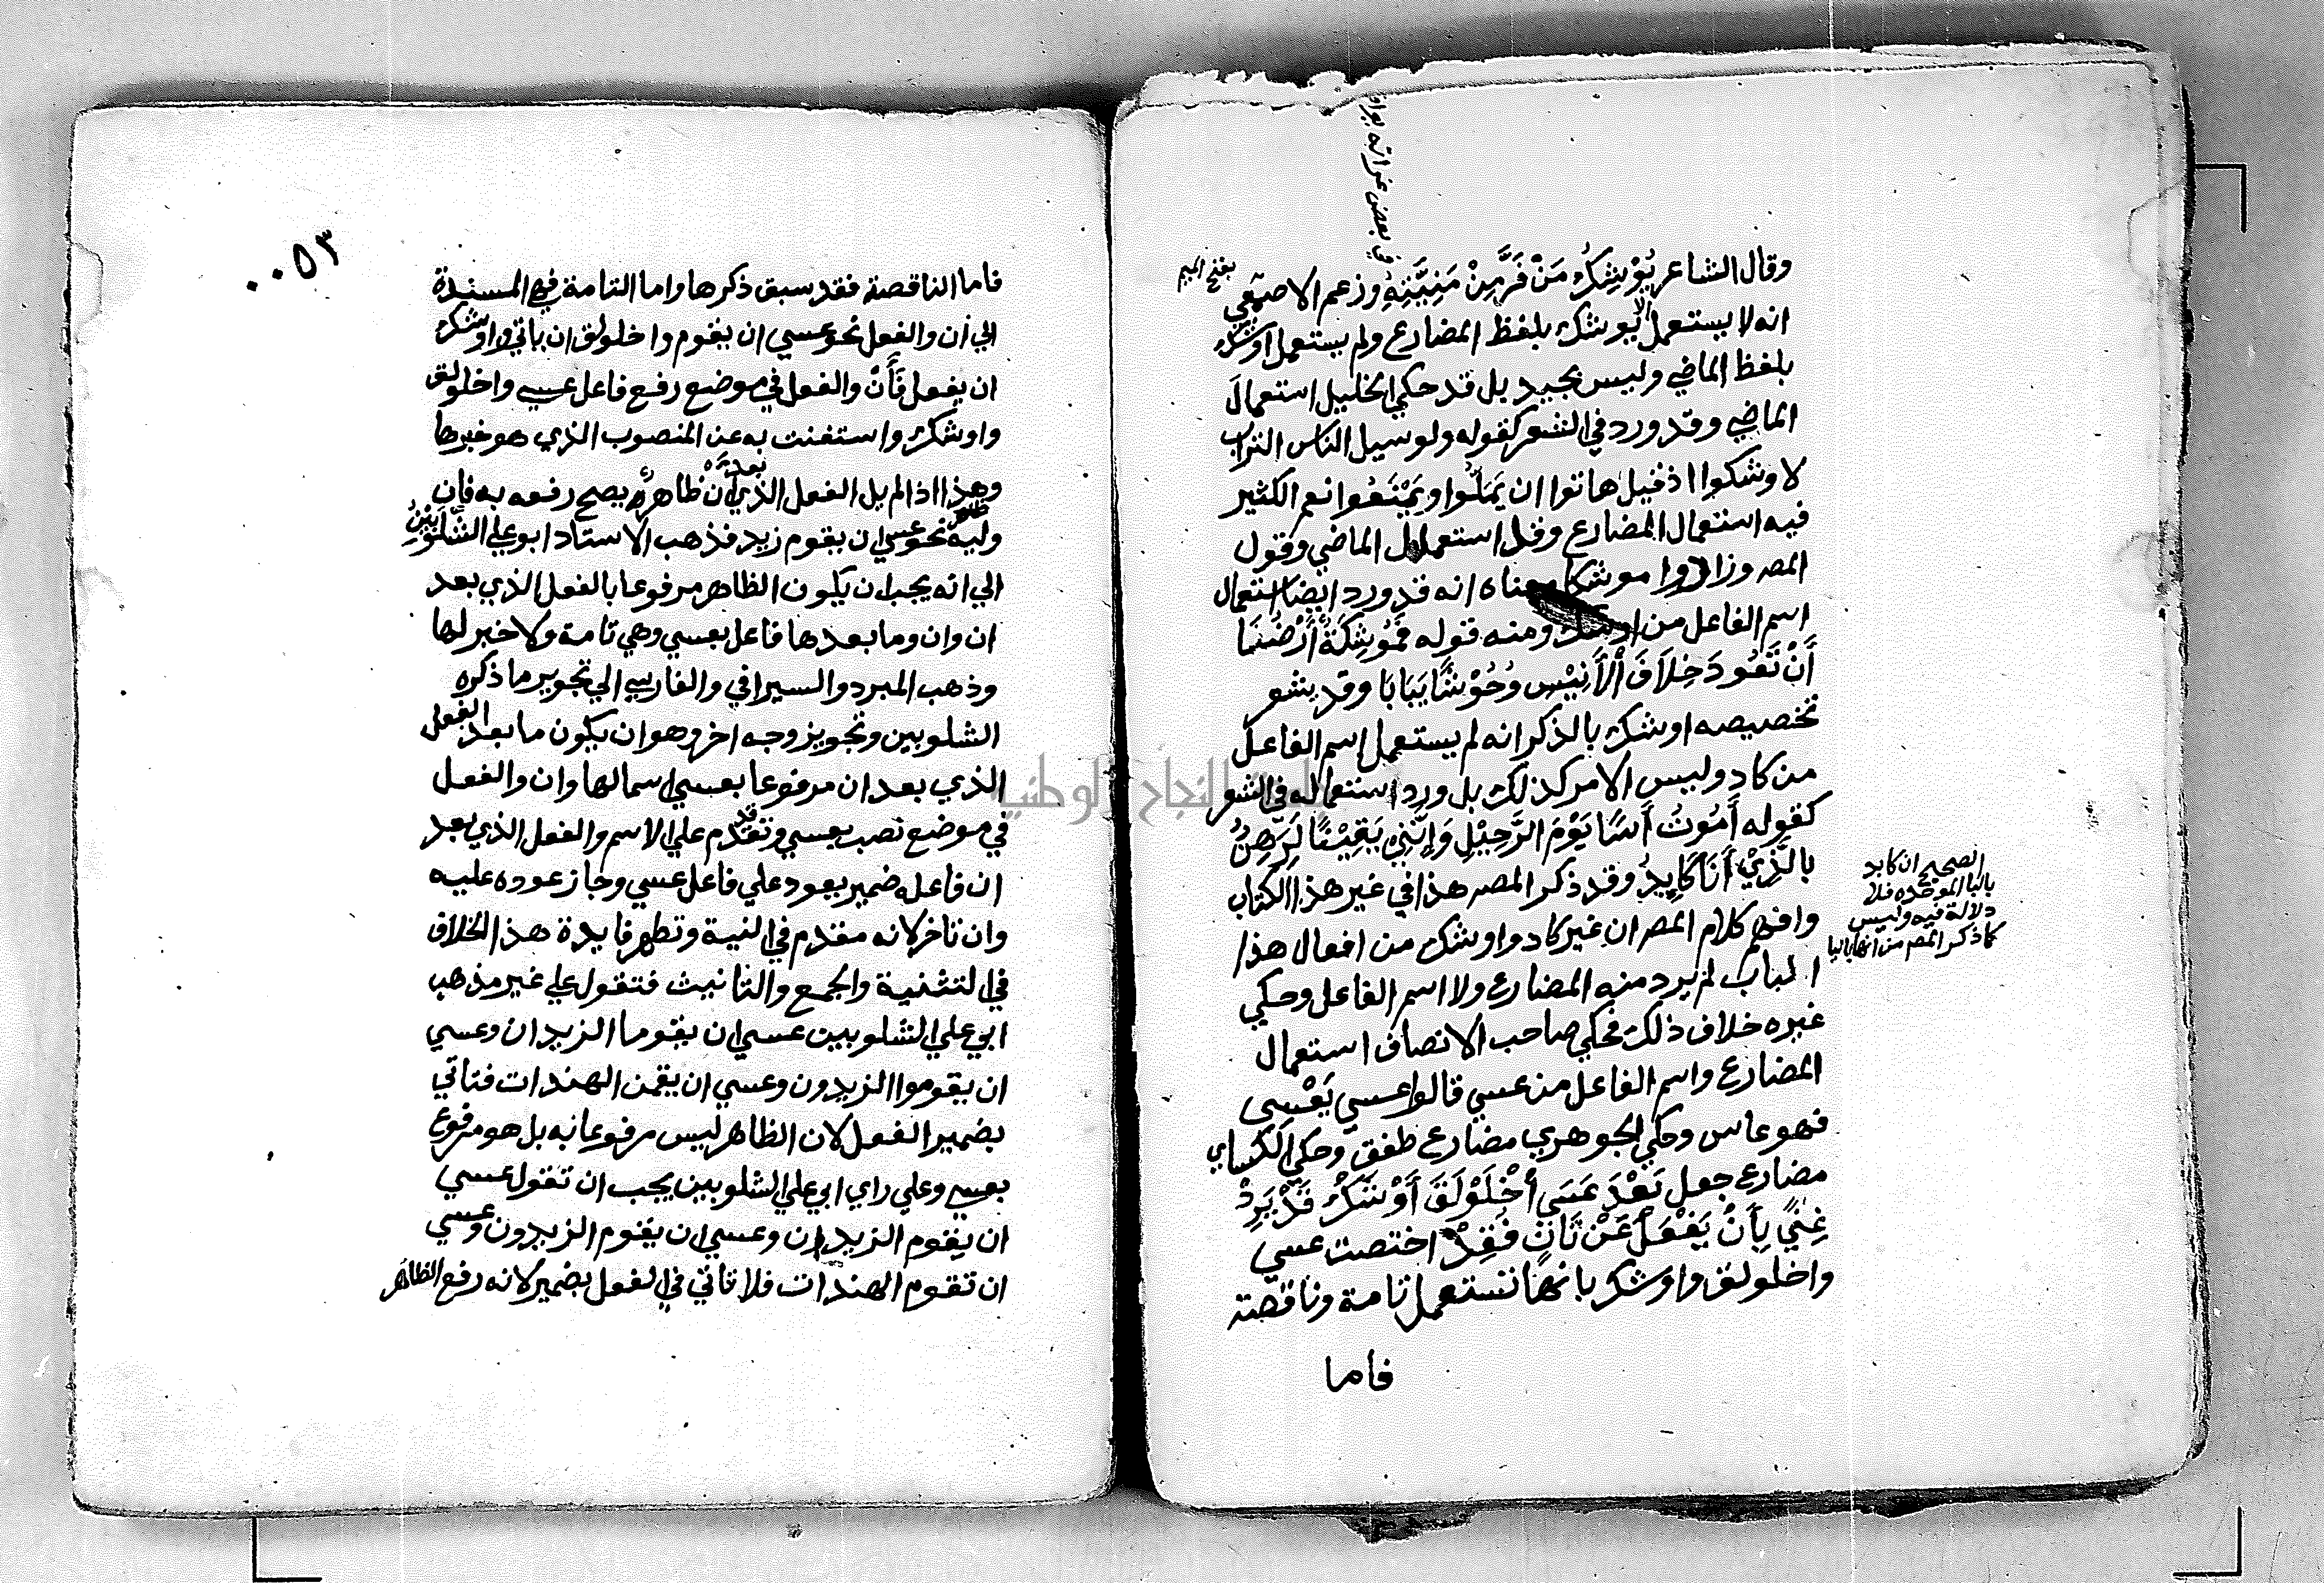 في بعض غراته يوافـ
بفتح الميم
وقال الشاعر يُوْشِكُ مَنْ فَرَّ مِنْ مَنِيَّتِهِ وزعم الاصمعي
انه لا يستعمل الا يوشك بلفظ المضارع ولم يستعمل اوشك
بلفظ الماضي وليس بجيد بل قد حكي الخليل استعمال
الماضي وقد ورد في الشعر كقوله ولو سيل الناس التراب
لاوشكوا اذ قيل هاتوا ان يَمَلُّوا ويَمْنَعُوا نعم الكثير
فيه استعمال المضارع وقل استعمال الماضي وقول
المصـ وزادوا موشكا معناه انه قد ورد ايضا استعمال
اسم الفاعل من اوشك ومنه قوله فَمُوشِكَةٌ أَرْضُنَا
أَنْ تَعُودَ خِلَافَ الْأَنِيْسِ وُحُوْشًا يَبَابَا وقد يشعر
تخصيصه اوشك بالذكر انه لم يستعمل اسم الفاعل
من كاد وليس الامر كذلك بل ورد استعماله في الشعر
كقوله أَمُوتُ أَسًا يَوْمَ الرَّجِيْلِ وَإِنَّنِيْ يَقِيْنًا لَرَهِنٌ
بالَّذِيْ أَنَا كَايِدُ وقد ذكر المصـ هذا في غير هذا الكتاب
وافهم كلام المصـ ان غير كاد واوشك من افعال هذا
الباب لم يرد منه المضارع ولا اسم الفاعل وحكي
غيره خلاف ذلك فحكي صاحب الانصاف استعمال
المضارع واسم الفاعل من عسي قالوا عسي يَعْسِي
فهو عاس وحكي الجوهري مضارع طفق وحكي الكساي
مضارع جعل بَعْدَ عَسَى اخْلَوْلَقَ أَوْشَكْ قَدْ يَرِدْ
غِنًي بِأَنْ يَفْعَلَ عَنْ ثَانٍ فُقِدْ اختصت عسي
واخلولق واوشك بانها تستعمل تامة وناقصة
فاما
الصحيح ان كابد
بالبا الموحده فلا
دلالة فيه وليس
كما ذكر المصـ من انها باليا
٠٠٥٣
فاما الناقصة فقد سبق ذكرها واما التامة فهي المسندة
الي ان والفعل نحو عسي ان يقوم واخلولق ان ياتي واوشك
ان يفعل فَأَنْ والفعل في موضع رفع فاعل عسي واخلولق
واوشك واستغنت به عن المنصوب الذي هو خبرها
وهذا اذا لم يل الفعل الذي بعد ان ظاهر يصح رفعه به فان
وليه نحو عسي ان يقوم زيد فذهب الاستاد ابو علي الشلوبين
الي انه يجب ان يكون الظاهر مرفوعا بالفعل الذي بعد
ان وان وما بعدها فاعل بعسي وهي تامة ولا خبر لها
وذهب المبرد والسيرافي والفارسي الي تجويز ما ذكره
الشلوبين وتجويز وجه اخر وهو ان يكون ما بعد الفعل
الذي بعد ان مرفوعا بعسي اسما لها وان والفعل
في موضع نصب بعسي وتقدم علي الاسم والفعل الذي بعد
ان فاعله ضمير يعود علي فاعل عسي وجاز عوده عليه
وان تاخر لانه مقدم في النية وتظهر فايدة هذا الخلاف
في التثنية والجمع والتانيث فتقول علي غير مذهب
ابي علي الشلوبين عسي ان يقوما الزيدان وعسي
ان يقوموا الزيدون وعسي ان يقمن الهندات فتاتي
بضمير الفعل لان الظاهر ليس مرفوعا به بل هو مرفوع
بعسي وعلي راي ابي علي الشلوبين يجب ان تقول عسي
ان يقوم الزيدان وعسي ان يقوم الزيدون وعسي
ان تقوم الهندات فلا تاتي في الفعل بضمير لانه رفع الظاهر